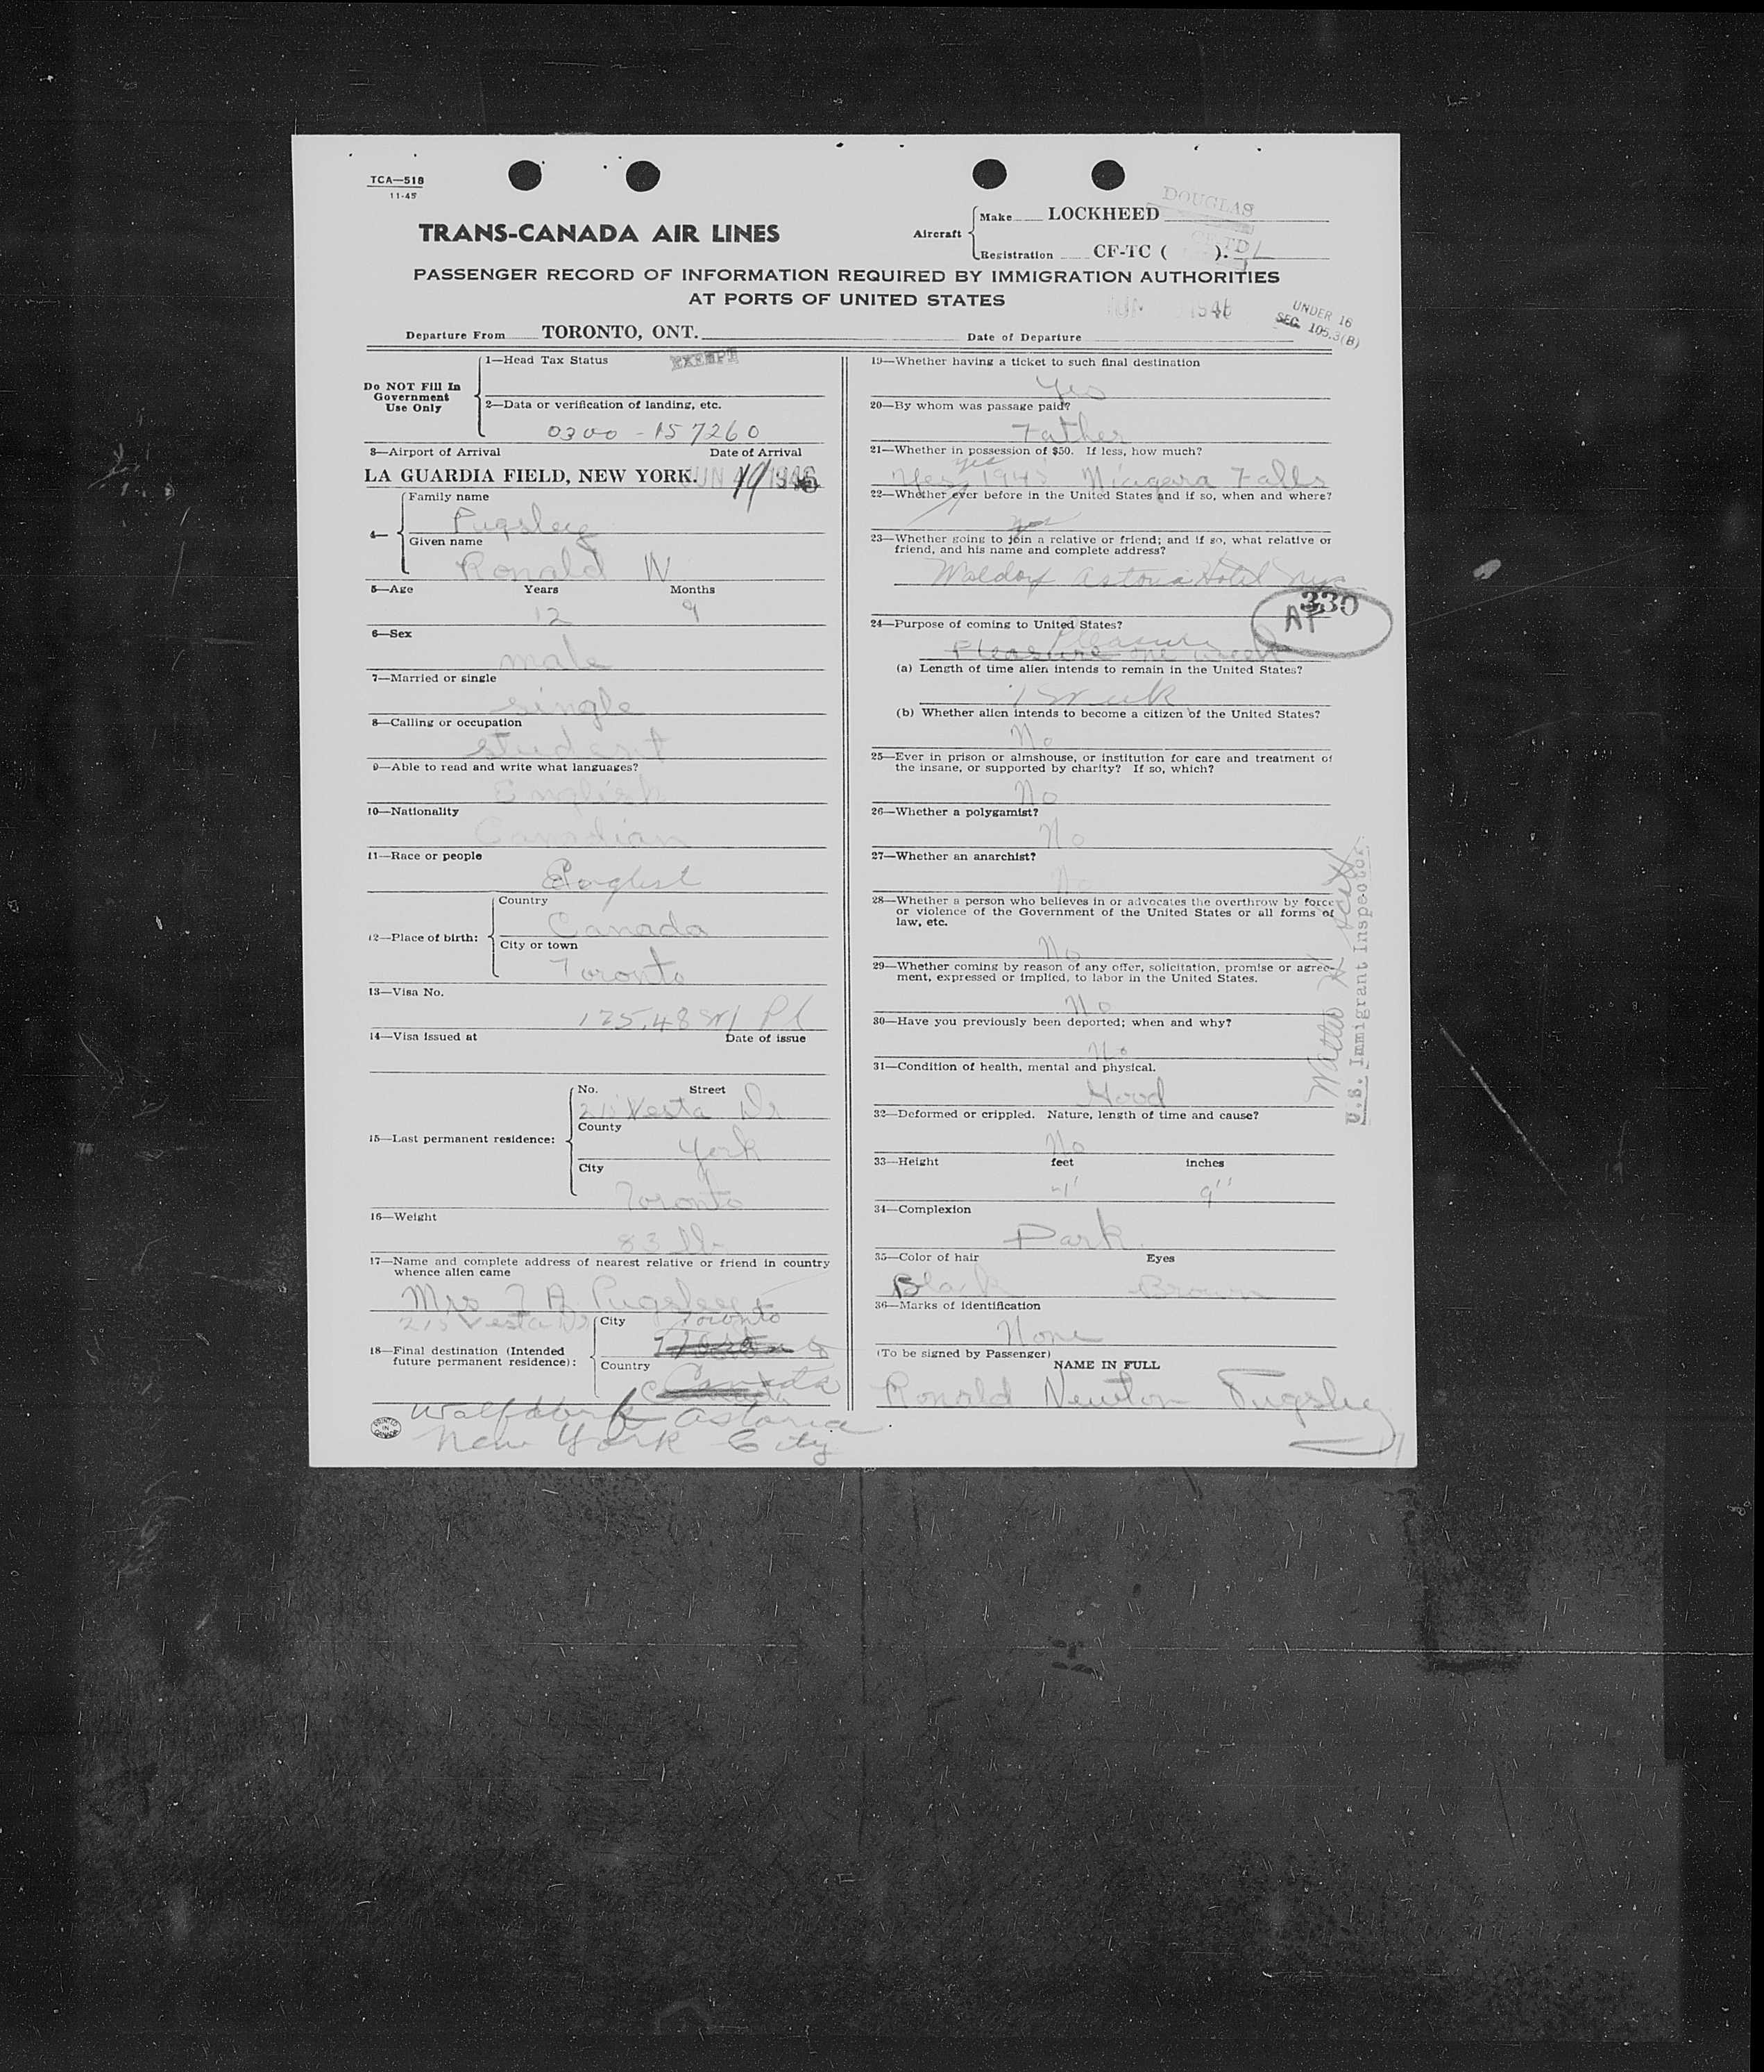 TCA—518
11-45
TRANS-CANADA AIR LINES
Aircraft
Make LOCKHEED DOUGLAS
Registration CF-TC ( ).
PASSENGER RECORD OF INFORMATION REQUIRED BY IMMIGRATION AUTHORITIES
AT PORTS OF UNITED STATES
JUN 1946
UNDER 16
SEC. 105.3(B)
Departure From TORONTO, ONT. Date of Departure
Do NOT Fill In
Government
Use Only
1—Head Tax Status EXEMPT
2—Data or verification of landing, etc.
0300 - 157260
3—Airport of Arrival Date of Arrival
LA GUARDIA FIELD, NEW YORK. JUN 1946
4—
Family name
Pugsley
Given name
Ronald W
5—Age Years Months
12 9
6—Sex
male
7—Married or single
single
8—Calling or occupation
student
9—Able to read and write what languages?
English
10—Nationality
Canadian
11—Race or people
English
12—Place of birth:
Country
Canada
City or town
Toronto
13—Visa No.
14—Visa issued at Date of issue
15—Last permanent residence:
No. Street
215 Vesta Dr
County
York
City
Toronto
16—Weight
83 lb
17—Name and complete address of nearest relative or friend in country
whence alien came
Mrs Pugsley
215 Vesta Dr
18—Final destination (Intended
future permanent residence):
City Toronto
Country
Canada
Astoria
New York City
PRINTED
IN
CANADA
19—Whether having a ticket to such final destination
Yes
20—By whom was passage paid?
Father
21—Whether in possession of $50. If less, how much?
yes
Yes 1945 Niagara Falls
22—Whether ever before in the United States and if so, when and where?
yes
23—Whether going to join a relative or friend; and if so, what relative or
friend, and his name and complete address?
Waldorf Astoria Hotel NYC
330
24—Purpose of coming to United States?
Pleasure
Pleasure one week
(a) Length of time alien intends to remain in the United States?
1 week
(b) Whether alien intends to become a citizen of the United States?
No
25—Ever in prison or almshouse, or institution for care and treatment of
the insane, or supported by charity? If so, which?
No
26—Whether a polygamist?
No
27—Whether an anarchist?
No
28—Whether a person who believes in or advocates the overthrow by force
or violence of the Government of the United States or all forms of
law, etc.
No
29—Whether coming by reason of any offer, solicitation, promise or agree-
ment, expressed or implied, to labor in the United States.
No
30—Have you previously been deported; when and why?
No
31—Condition of health, mental and physical.
Good
32—Deformed or crippled. Nature, length of time and cause?
No
33—Height feet inches
9"
34—Complexion
Dark
35—Color of hair Eyes
Black Brown
36—Marks of identification
None
(To be signed by Passenger)
NAME IN FULL
Ronald Newton Pugsley
U.S. Immigrant Inspector.